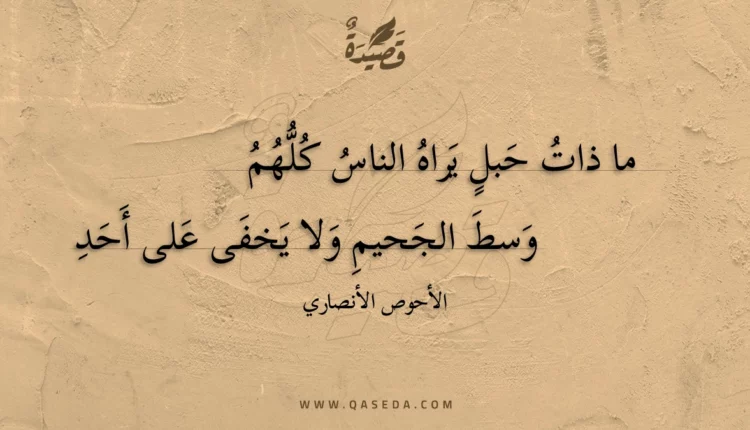 قَصيدَةٌ
ما ذاتُ حَبلٍ يَراهُ الناسُ كُلُّهُمُ
وَسطَ الجَحيمِ وَلا يَخفَى عَلى أَحَدِ
الأحوص الأنصاري
WWW.QASEDA.COM